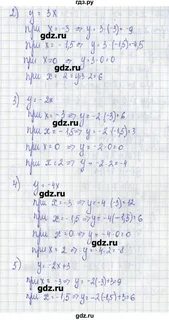 2) y = 3x
при x = -3 ⇒ y = 3·(-3) = -9
при x = -1,5 ⇒ y = 3·(-1,5) = -4,5
при x = 0 ⇒ y = 3·0 = 0
при x = 2 ⇒ y = 3·2 = 6
3) y = -2x
при x = -3 ⇒ y = -2·(-3) = 6
при x = -1,5 ⇒ y = -2·(-1,5) = 3
при x = 0 ⇒ y = -2·0 = 0
при x = 2 ⇒ y = -2·2 = -4
4) y = -4x
при x = -3 ⇒ y = -4·(-3) = 12
при x = -1,5 ⇒ y = -4·(-1,5) = 6
при x = 0 ⇒ y = -4·0 = 0
при x = 2 ⇒ y = -4·2 = -8
5) y = -2x+3
при x = -3 ⇒ y = -2(-3)+3 = 9
при x = -1,5 ⇒ y = -2(-1,5)+3 = 6